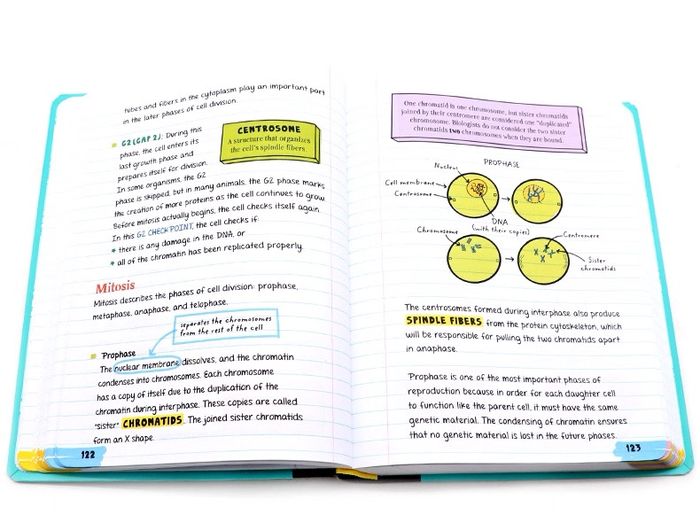 tubes and fibers in the cytoplasm play an important part
in the later phases of cell division.
G2 (GAP 2): During this
phase, the cell enters its
last growth phase and
prepares itself for division.
In some organisms, the G2
phase is skipped, but in many animals, the G2 phase marks
the creation of more proteins as the cell continues to grow.
Before mitosis actually begins, the cell checks itself again.
In this G2 CHECKPOINT, the cell checks if:
there is any damage in the DNA, or
all of the chromatin has been replicated properly.
CENTROSOME
A structure that organizes
the cell's spindle fibers.
Mitosis
Mitosis describes the phases of cell division: prophase,
metaphase, anaphase, and telophase.
separates the chromosomes
from the rest of the cell
Prophase
The nuclear membrane dissolves, and the chromatin
condenses into chromosomes. Each chromosome
has a copy of itself due to the duplication of the
chromatin during interphase. These copies are called
"sister" CHROMATIDS. The joined sister chromatids
form an X shape.
122
One chromatid is one chromosome, but sister chromatids
joined by their centromere are considered one "duplicated"
chromosome. Biologists do not consider the two sister
chromatids two chromosomes when they are bound.
PROPHASE
Nucleus
Cell membrane
Centrosome
DNA
(with their copies)
Chromosome
Centromere
Sister
chromatids
The centrosomes formed during interphase also produce
SPINDLE FIBERS from the protein cytoskeleton, which
will be responsible for pulling the two chromatids apart
in anaphase.
Prophase is one of the most important phases of
reproduction because in order for each daughter cell
to function like the parent cell, it must have the same
genetic material. The condensing of chromatin ensures
that no genetic material is lost in the future phases.
123